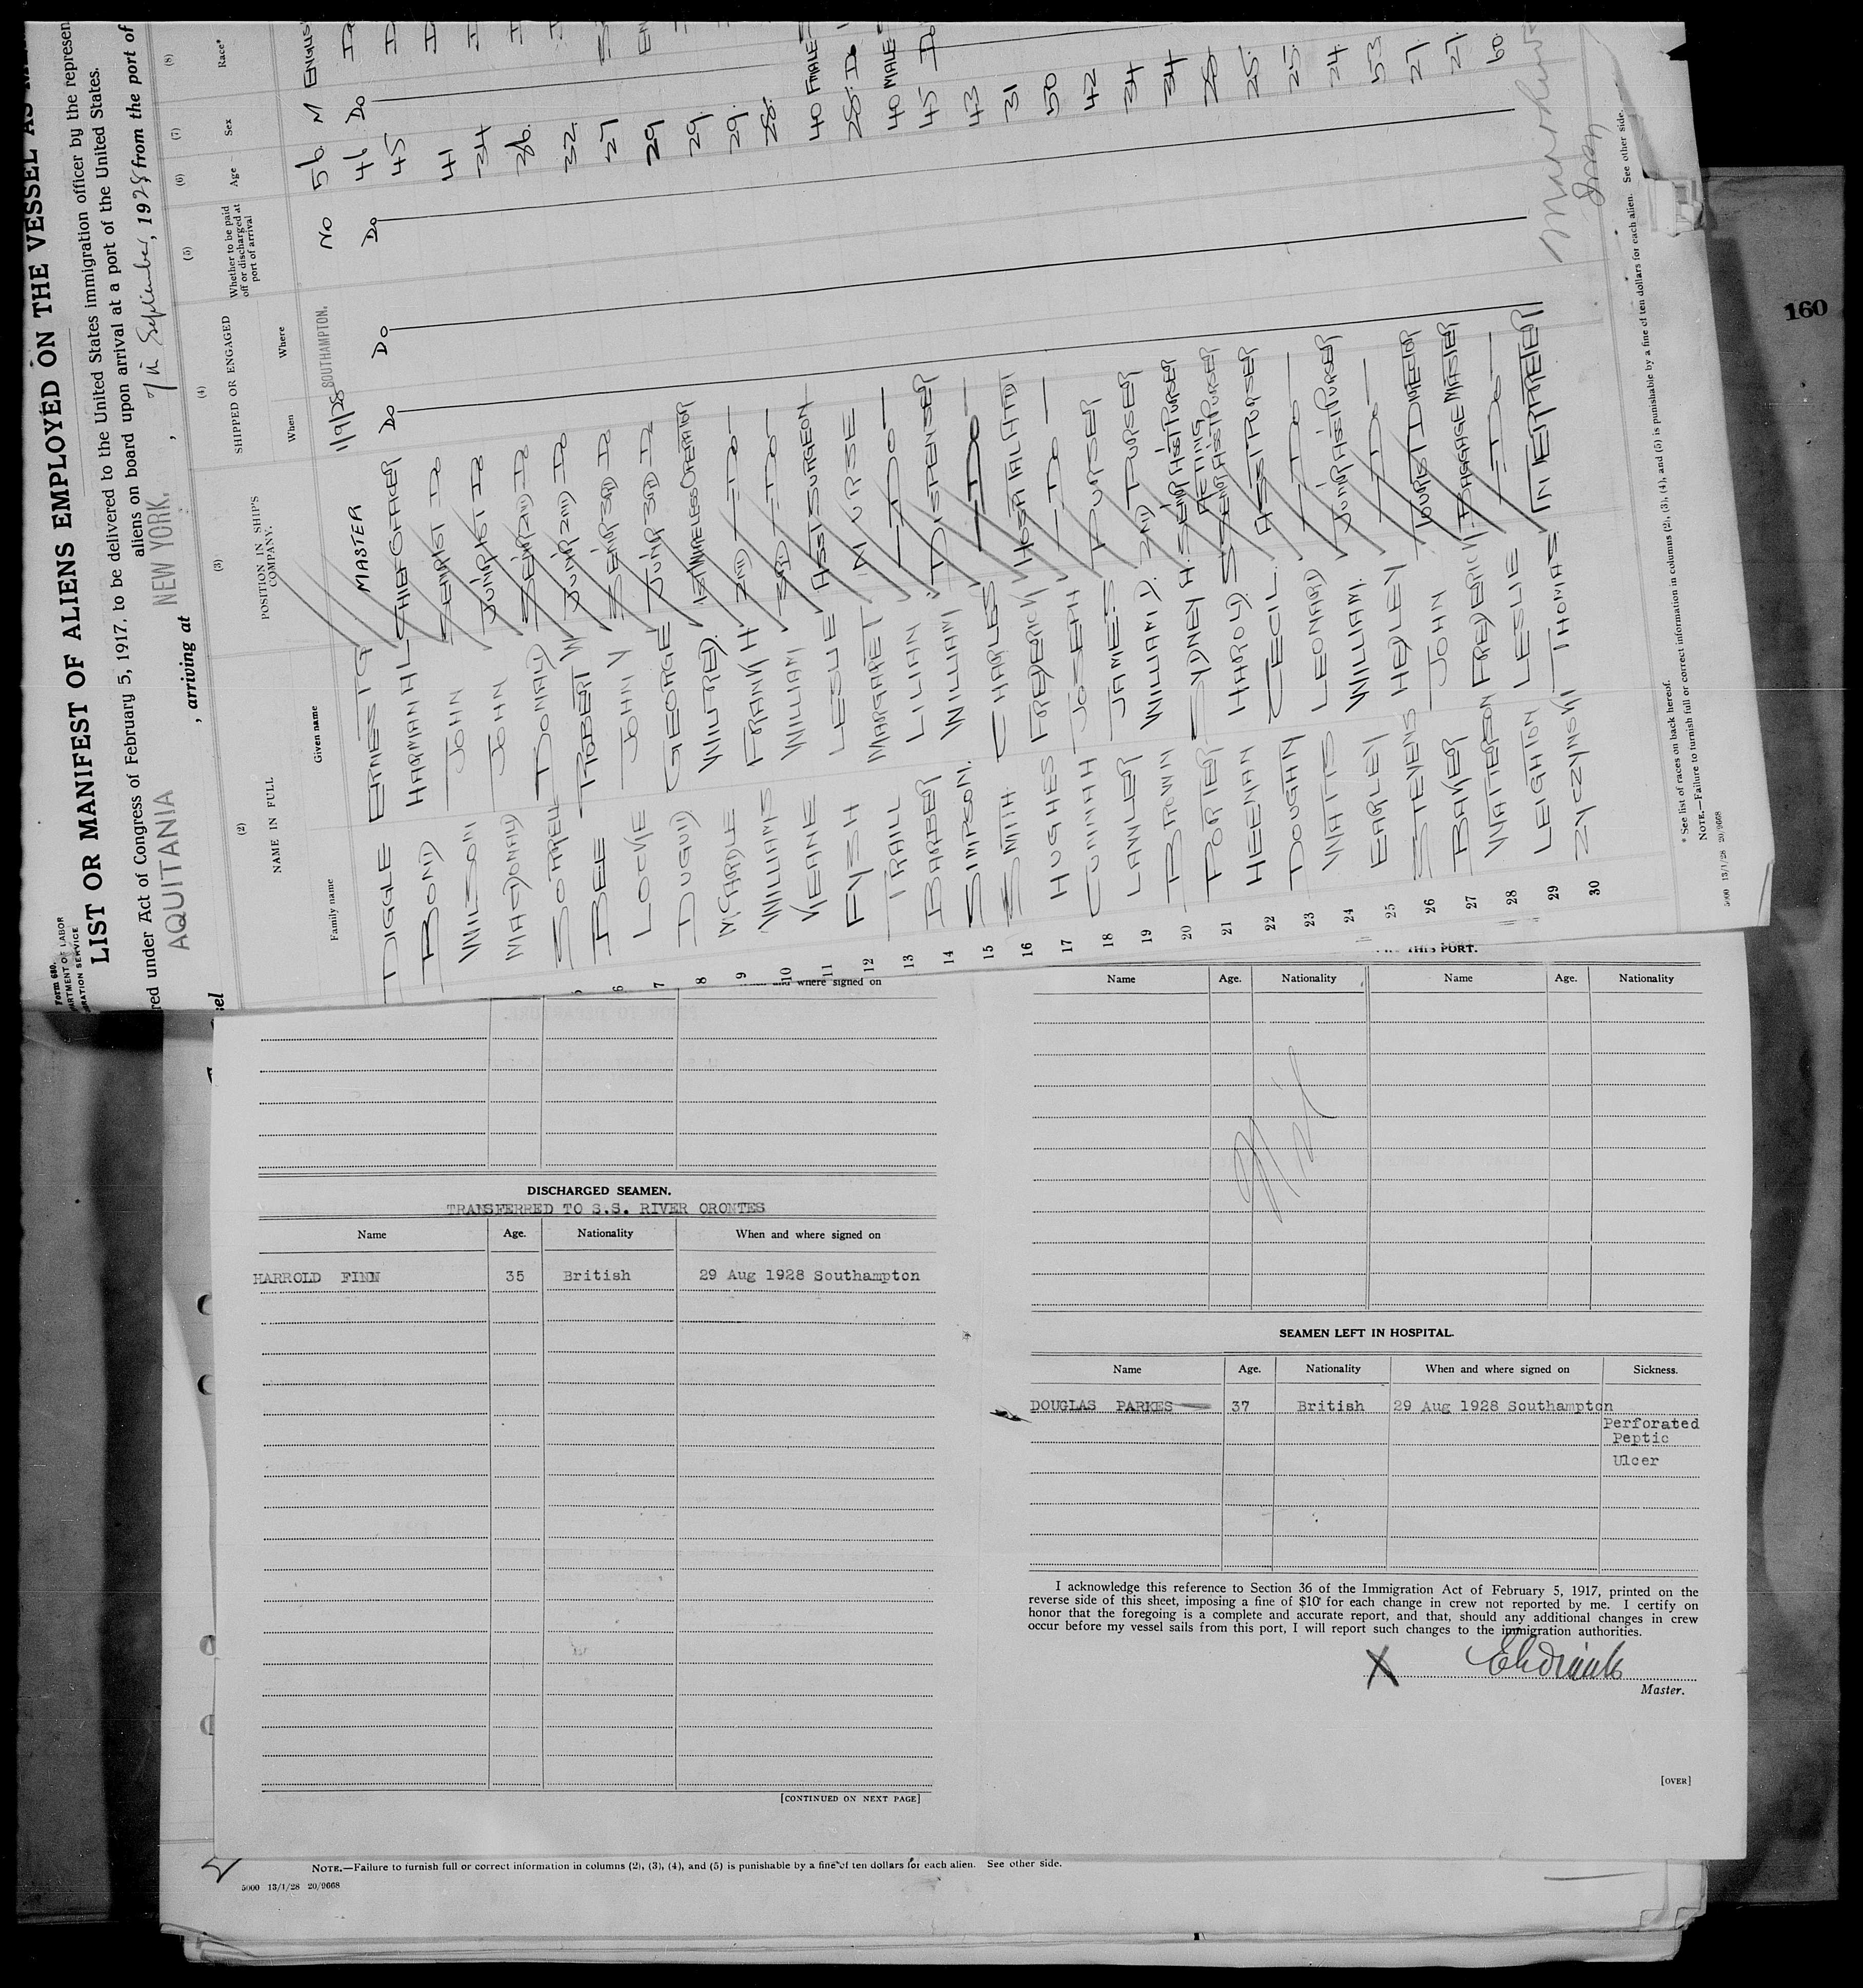 Form 680.
LABOR
LIST OR MANIFEST OF ALIENS EMPLOYED ON THE VESSEL AS
red under Act of Congress of February 5, 1917, to be delivered to the United States immigration officer by the represen
aliens on board upon arrival at a port of the United States.
AQUITANIA , arriving at NEW YORK. , 7th September, 1928 from the port of
(2) (3) (4) (5) (6) (7) (8)
NAME IN FULL POSITION IN SHIP'S COMPANY. SHIPPED OR ENGAGED Whether to be paid off or discharged at port of arrival Age Sex Race*
Family name Given name When Where
DIGGLE ERNEST G MASTER 1/9/28 SOUTHAMPTON. NO 56 M ENGLIS
BOND HARMAN H L CHIEF OFFICER Do Do Do 46 Do
WILSON JOHN SENR 1ST Do 45
MACDONALD JOHN JUNR 1ST Do 41
SORRELL DONALD SENR 2ND Do 34
BEE ROBERT W JUNR 2ND Do 36.
LOCKE JOHN V SENR 3RD Do 32
DUGUID GEORGE JUNR 3RD Do 27
8 McARDLE WILFRED. 1ST WIRELESS OPERATOR 29
9 WILLIAMS FRANK H 2ND —Do— 29.
10 KEANE WILLIAM 3RD —Do— 29.
11 FYSH LESLIE ASST SURGEON 28.
12 TRAILL MARGARET NURSE 40 FMALE
13 BARBER LILIAN —Do— 28. Do
14 SIMPSON. WILLIAM DISPENSER 40 MALE
15 SMITH CHARLES —Do— 45 Do
16 HUGHES FREDERICK HOSPITAL ATTDT 43
17 CUNNAH JOSEPH —Do— 31
18 LAWLER JAMES PURSER 50
19 BROWN WILLIAM D. 2ND PURSER 42
20 PORTER SYDNEY H. SENR ASST PURSER 34
21 HEENAN HAROLD. S ACTING SENR ASST PURSER 34
22 DOUGAN CECIL. ASST PURSER 28
23 WATTS LEONARD —Do— 25.
24 EARLEY WILLIAM. JUNR ASST PURSER 25.
25 STEVENS HEDLEY —Do— 24.
26 BAKER JOHN TOURIST DIRECTOR 53
27 WATTERSON FREDERICK BAGGAGE MASTER 27
28 LEIGHTON LESLIE —Do— 27.
29 ZYCZYNSKI THOMAS INTERPRETER 60
30
* See list of races on back hereof.
NOTE.—Failure to furnish full or correct information in columns (2), (3), (4), and (5) is punishable by a fine of ten dollars for each alien. See other side.
5000 13/1/28 20/9668
160
where signed on
THIS PORT.
Name Age. Nationality Name Age. Nationality
Nil
DISCHARGED SEAMEN.
TRANSFERRED TO S.S. RIVER ORONTES
Name Age. Nationality When and where signed on
HARROLD FINN 35 British 29 Aug 1928 Southampton
[CONTINUED ON NEXT PAGE]
SEAMEN LEFT IN HOSPITAL.
Name Age. Nationality When and where signed on Sickness.
DOUGLAS PARKES 37 British 29 Aug 1928 Southampton
Perforated
Peptic
Ulcer
I acknowledge this reference to Section 36 of the Immigration Act of February 5, 1917, printed on the
reverse side of this sheet, imposing a fine of $10 for each change in crew not reported by me. I certify on
honor that the foregoing is a complete and accurate report, and that, should any additional changes in crew
occur before my vessel sails from this port, I will report such changes to the immigration authorities.
X
Master.
[OVER]
NOTE.—Failure to furnish full or correct information in columns (2), (3), (4), and (5) is punishable by a fine of ten dollars for each alien. See other side.
5000 13/1/28 20/9668